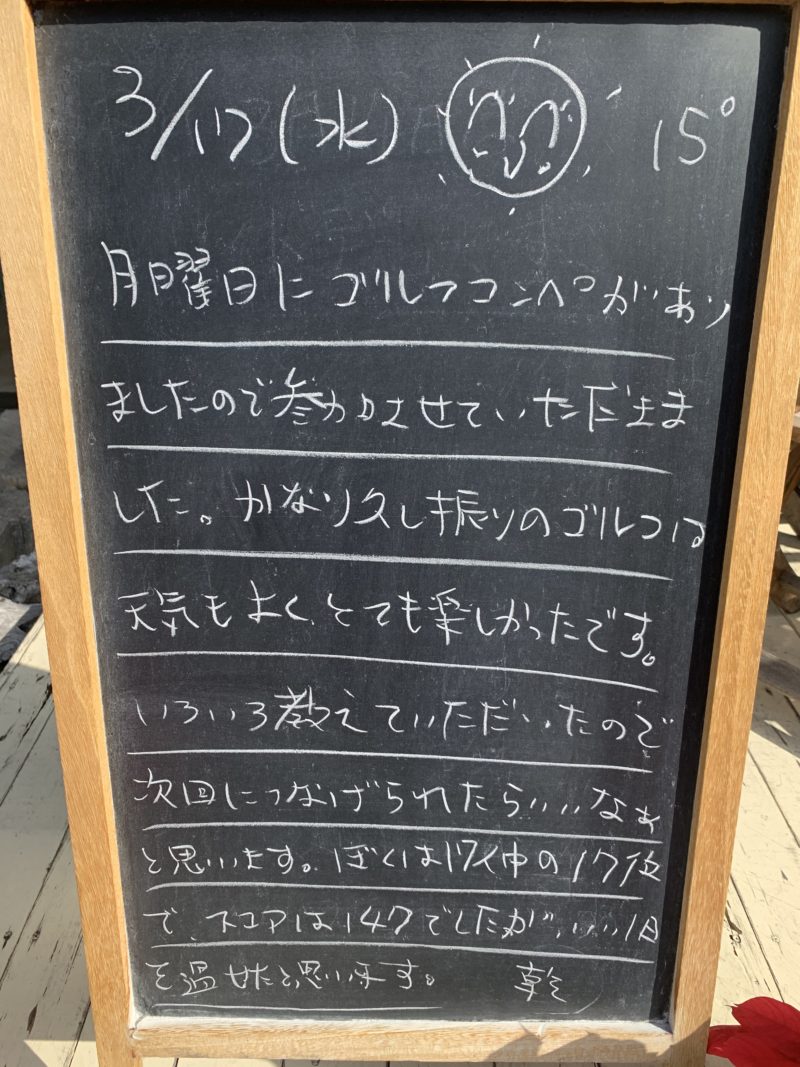 3/17(水) 15°
月曜日にゴルフコンペがあり
ましたので参加させていただきま
した。かなり久し振りのゴルフは
天気もよく、とても楽しかったです。
いろいろ教えていただいたので
次回につなげられたらいいなぁ
と思います。ぼくは17人中の17位
で、スコアは147でしたが、いい1日
を過せたと思います。 乾